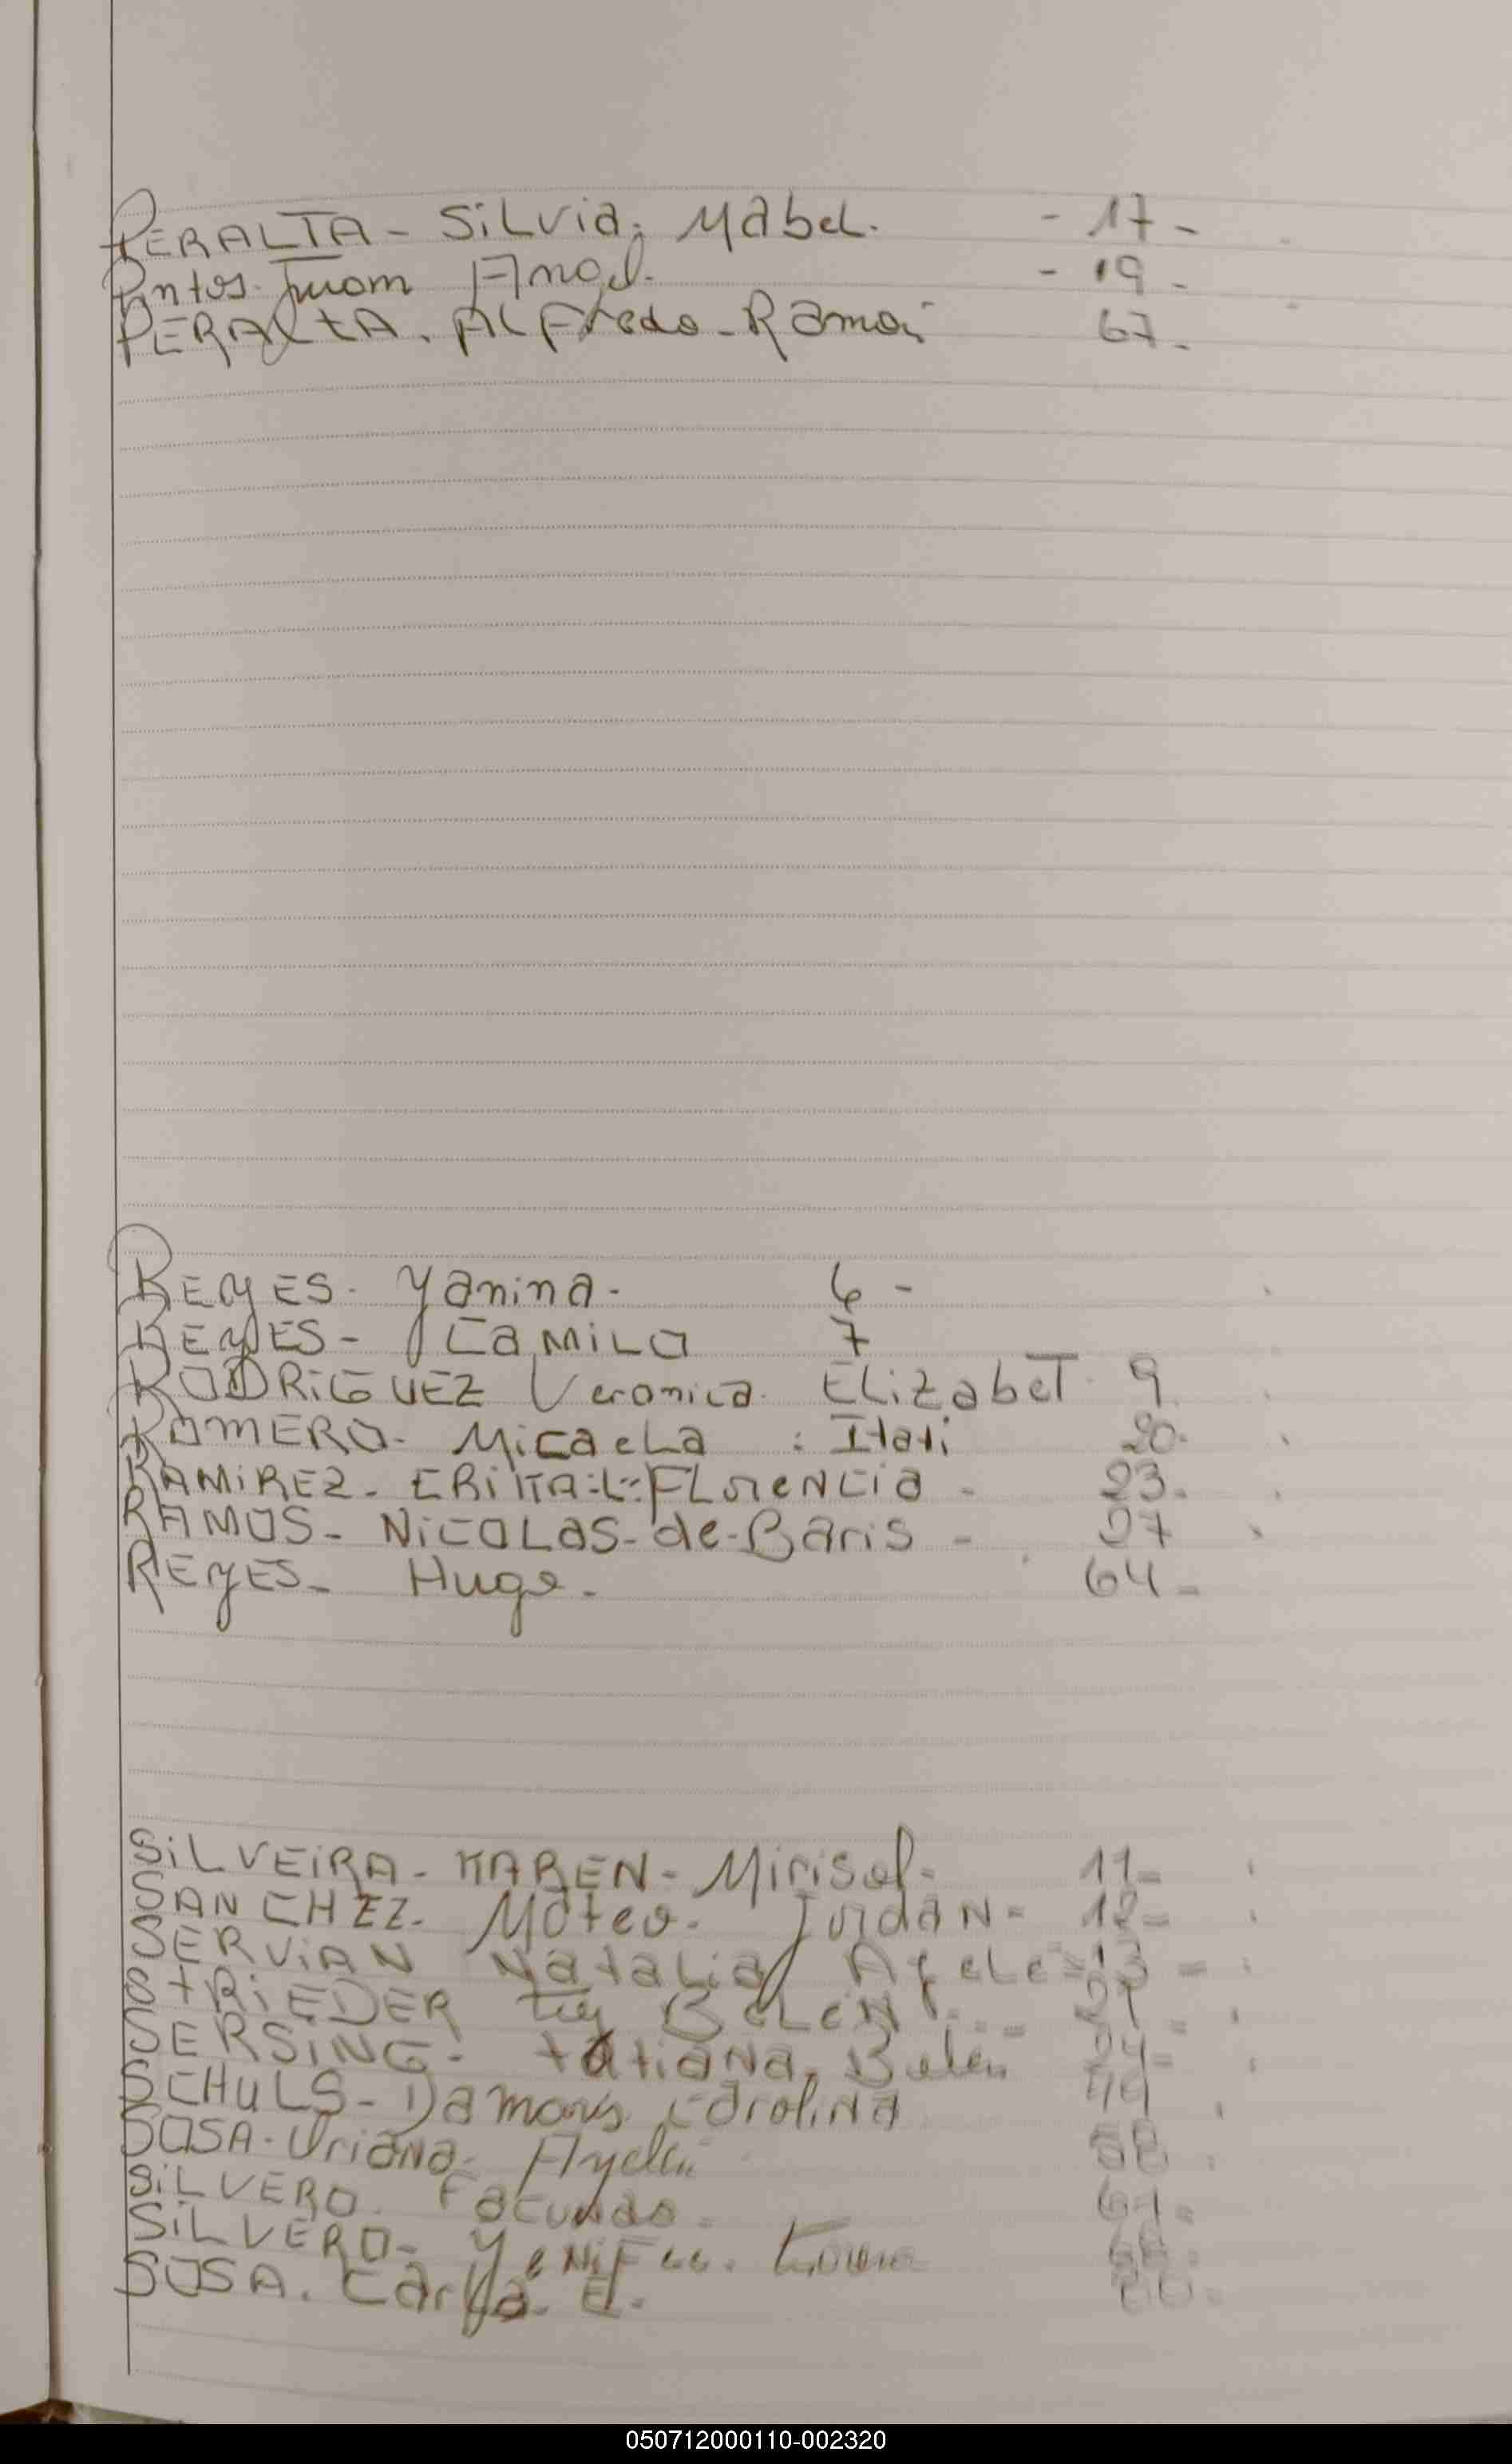 PERALTA - SiLvia. Mabel. - 17 -
Pintos. Juan Angel. - 19 -
PERALtA. ALFredo - Ramon 67 -
REYES. Yanina - 6 -
REYES - CAMiLO 7
RODRiGUEZ Veronica. ELizabeT 9
ROMERO - MicaeLa : Itati 20.
RAMiREZ - ERiKA FLorENCia - 23.
RAMOS - NiCOLAS - de - Baris - 57
REYES - Hugo - 64 -
SiLVEiRA - KAREN - Mirisol - 11 -
SANCHEZ - Mateo - Jordan - 12 -
SERViAN Natalia 13 -
StRiEDER BELEN
SERSiNG - tatiana. Belen
SCHULS - Damaris Carolina 49
SOSA - Oriana
SiLVERO. Facundo -
SiLVERO -
SOSA. Carla. E.
050712000110-002320